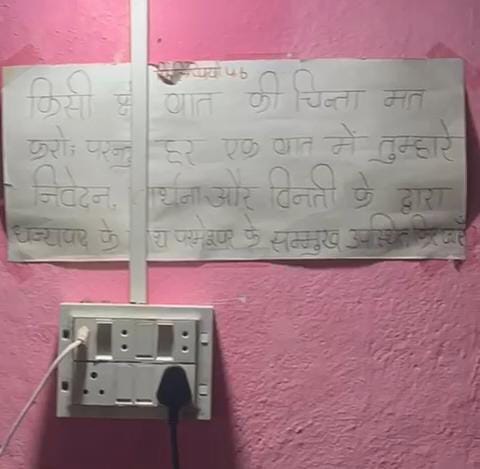 4 6
किसी भी बात की चिन्ता मत
करो; परन्तु हर एक बात में तुम्हारे
निवेदन, और विनती के द्वारा
धन्यवाद के साथ परमेश्वर के सम्मुख उपस्थित किए जाएँ